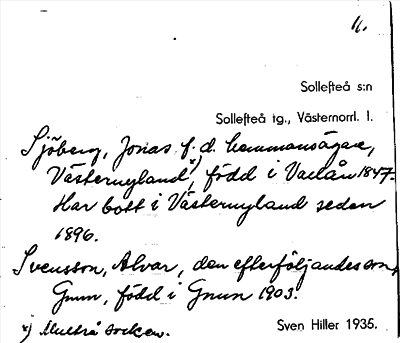 11.
Sollefteå s:n
Sollefteå tg., Västernorrl. l.
Sjöberg, Jonas f.d. hemmansägare,
Västernyland x), född i Vallån 1847.
Har bott i Västernyland sedan
1896.
Svensson, Alvar, den efterföljandes son,
Gmun, född i Gmun 1903.
x) Multrå socken.
Sven Hiller 1935.